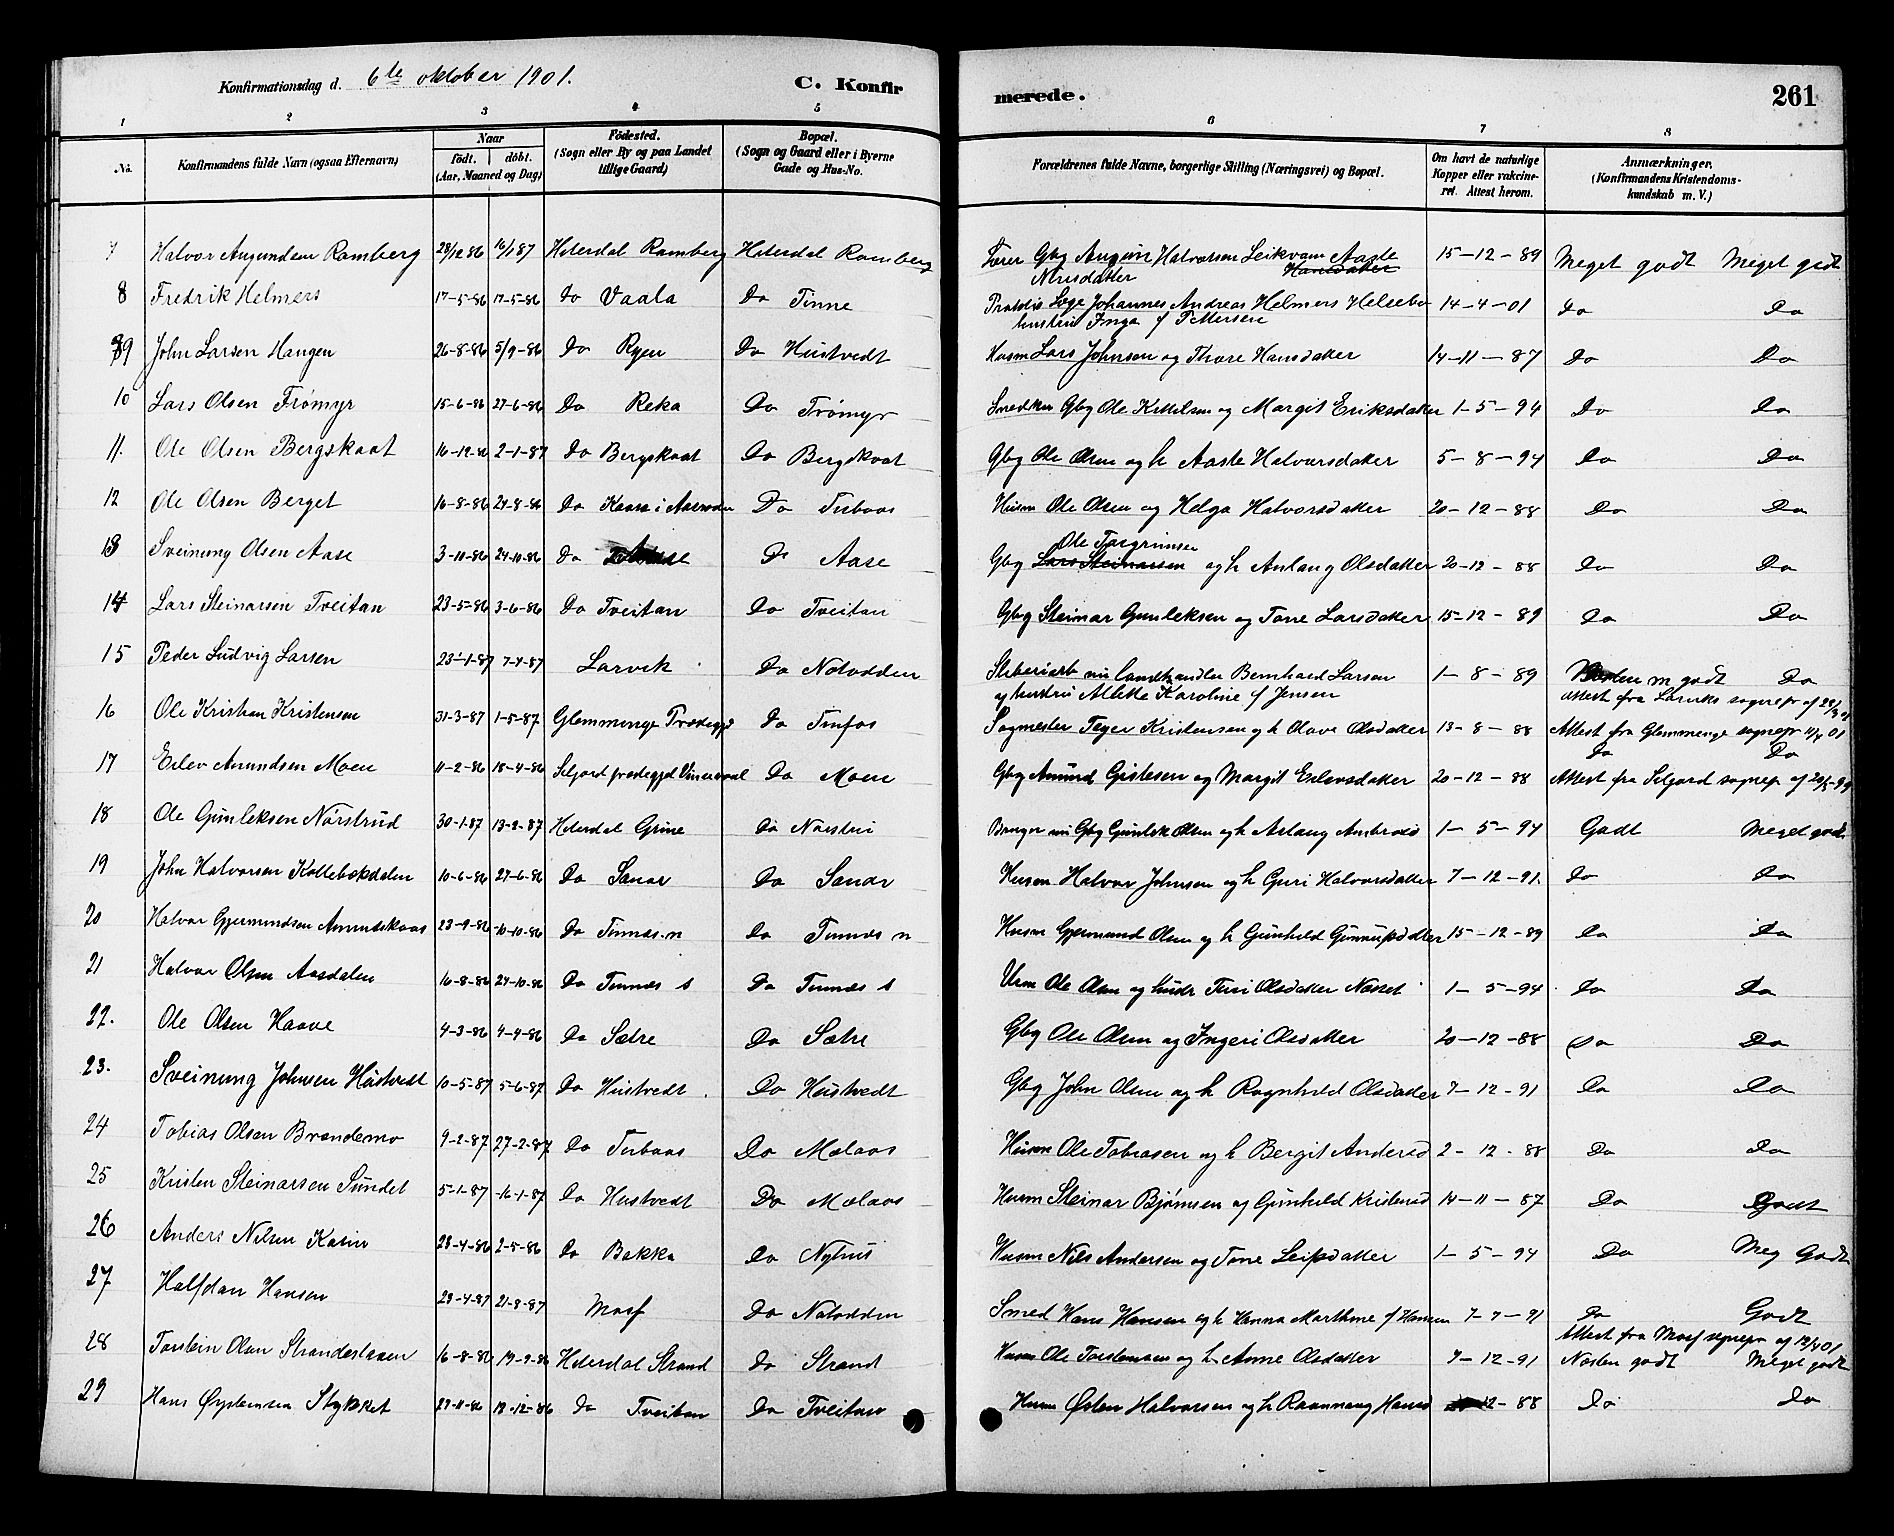 Konfirmationsdag d. 6te oktober 1901. C. Konfirmerede. 261
1 2 3 4 5 6 7 8
No. Konfirmandens fulde Navn (ogsaa Efternavn) Naar født. døbt. (Aar, Maaned og Dag) Fødested. (Sogn eller By og paa Landet tillige Gaard) Bopæl. (Sogn og Gaard eller i Byerne Gade og Hus-No. Forældrenes fulde Navne, borgerlige Stilling (Næringsvei) og Bopæl. Om havt de naturlige Kopper eller vakcineret. Attest herom. Anmærkninger. (Konfirmandens Kristendomskundskab m. V.)
7 Halvor Augundsen Ramberg 28/12 86 16/1 87 Hiterdal Ramberg Hiterdal Ramberg Gbg Halvorsen Leikvam Aaste Nirisdatter 15-12-89 Meget godt Meget godt
8 Fredrik Helmers 17-5-86 17-5-86 Do Vaala Do Tinne Læge Johannes Andreas Helmers hustru Inga f Pettersen 14-4-01 Do Do
9 John Larsen Haugen 26-8-86 5/9-86 Do Ryen Do Hustvedt Husm Lars Johnsen og Thore Hansdatter 14-11-87 Do Do
10 Lars Olsen Trømyr 15-6-86 27-6-86 Do Reka Do Trømyr Gbg Ole Kittilsen og Margit Eriksdatter 1-5-94 Do Do
11. Ole Olsen Bergskaat 16-12-86 2-1-87 Do Bergskaat Do Bergskaat Gbg Ole Olsen og h Aaste Halvorsdatter 5-8-94 Do Do
12 Ole Olsen Berget 16-8-86 29-8-86 Do Kaasa i Do Turbaas Husm Ole Olsen og Helga Halvorsdatter 20-12-88 Do Do
13 Sveinung Olsen Aase 3-10-86 24-10-86 Do Aase Do Aase Gbg Ole Torgrimsen og h Aslaug Olsdatter 20-12-88 Do Do
14 Lars Steinarsen Tveitan 23-5-86 3-6-86 Do Tveitan Do Tveitan Gbg Steinar Gunleksen og Tone Larsdatter 15-12-89 Do Do
15 Peder Ludvig Larsen 23-1-87 7-4-87 Larvik Do Notodden Sliberiarb nu landhandler Bernhard Larsen og hustru Alette Karoline f Jensen 1-8-89 Næsten m godt Do
attest fra Larviks sognepr af
16 Ole Kristian Kristensen 31-3-87 1-5-87 Glemminge Do Tinfos Sagmester Teger Kristensen og h Olave Olsdatter 13-8-88 Attest fra Glemminge sognepr 11/4 01
Do Do
17 Erlev Amundsen Moen 11-2-86 18-4-86 Seljord Do Moen Gbg Amund Gislesen og Margit Erlevsdatter 20-12-88 Attest fra Selgord sognepr af
18 Ole Gunleksen Nørstrud 30-1-87 13-2-87 Hiterdal Grine Do Nørstru Bruger nu Gbg Gunlek Olsen og h Aslaug 1-5-94 Godt Meget godt
19 John Halvorsen Kollebækdalen 10-6-86 27-6-86 Do Sanar Do Sanar Husm Halvor Johnsen og h Guri Halvorsdatter 7-12-91 Do Do
20 Halvor Gjermundsen Amundskaas 23-9-86 10-10-86 Do Tinnæs n Do Tinnæs n Husm Gjermund Olsen og h Gunhild 15-12-89 Do Do
21 Halvor Olsen Aasdalen 16-8-86 24-10-86 Do Tinnæs s Do Tinnæs s Ole Olsen og Turi Olsdatter 1-5-94 Do Do
22. Ole Olsen Haave 4-3-86 4-4-86 Do Sætre Do Sætre Gbg Ole Olsen og Ingeri Olsdatter 20-12-88 Do Do
23. Sveinung Johnsen Hustvedt 10-5-87 5-6-87 Do Hustvedt Do Hustvedt Gbg John Olsen og h Ragnhild Olsdatter 7-12-91 Do Do
24 Tobias Olsen Brændemo 9-2-87 27-2-87 Do Turbaas Do Mælaas Husm Ole Tobiasen og h Bergit Andersd 2-12-88 Do Do
25 Kristen Steinarsen Sundet 5-1-87 16-1-87 Do Hustvedt Do Mælaas Husm Steinar Bjørnsen og Gunhild Kristensd 14-11-87 Do Godt
26 Anders Nilsen Kasin 28-4-86 2-5-86 Do Bakka Do Nyhus Husm Nils Andersen og Tone Leifsdatter 1-5-94 Do Meg Godt
27 Halfdan Hansen 28-4-87 21-8-87 Moss Do Notodden Smed Hans Hansen og h Hanna Marthine f Hansen 7-7-91 Do Godt
Attest fra Moss sognepr af 12/4 01
28 Torstein Olsen Strandestaaen 16-8-86 19-9-86 Hiterdal Strand Do Strand Husm Ole Torstensen og h Anne Olsdatter 7-12-91 Næsten godt Meget godt
29 Hans Øystensen Stykket 27-11-86 19-12-86 Do Tveitan Do Tveitan Husm Østen Halvorsen og h Raannaug Hansd 12-88 Do Do